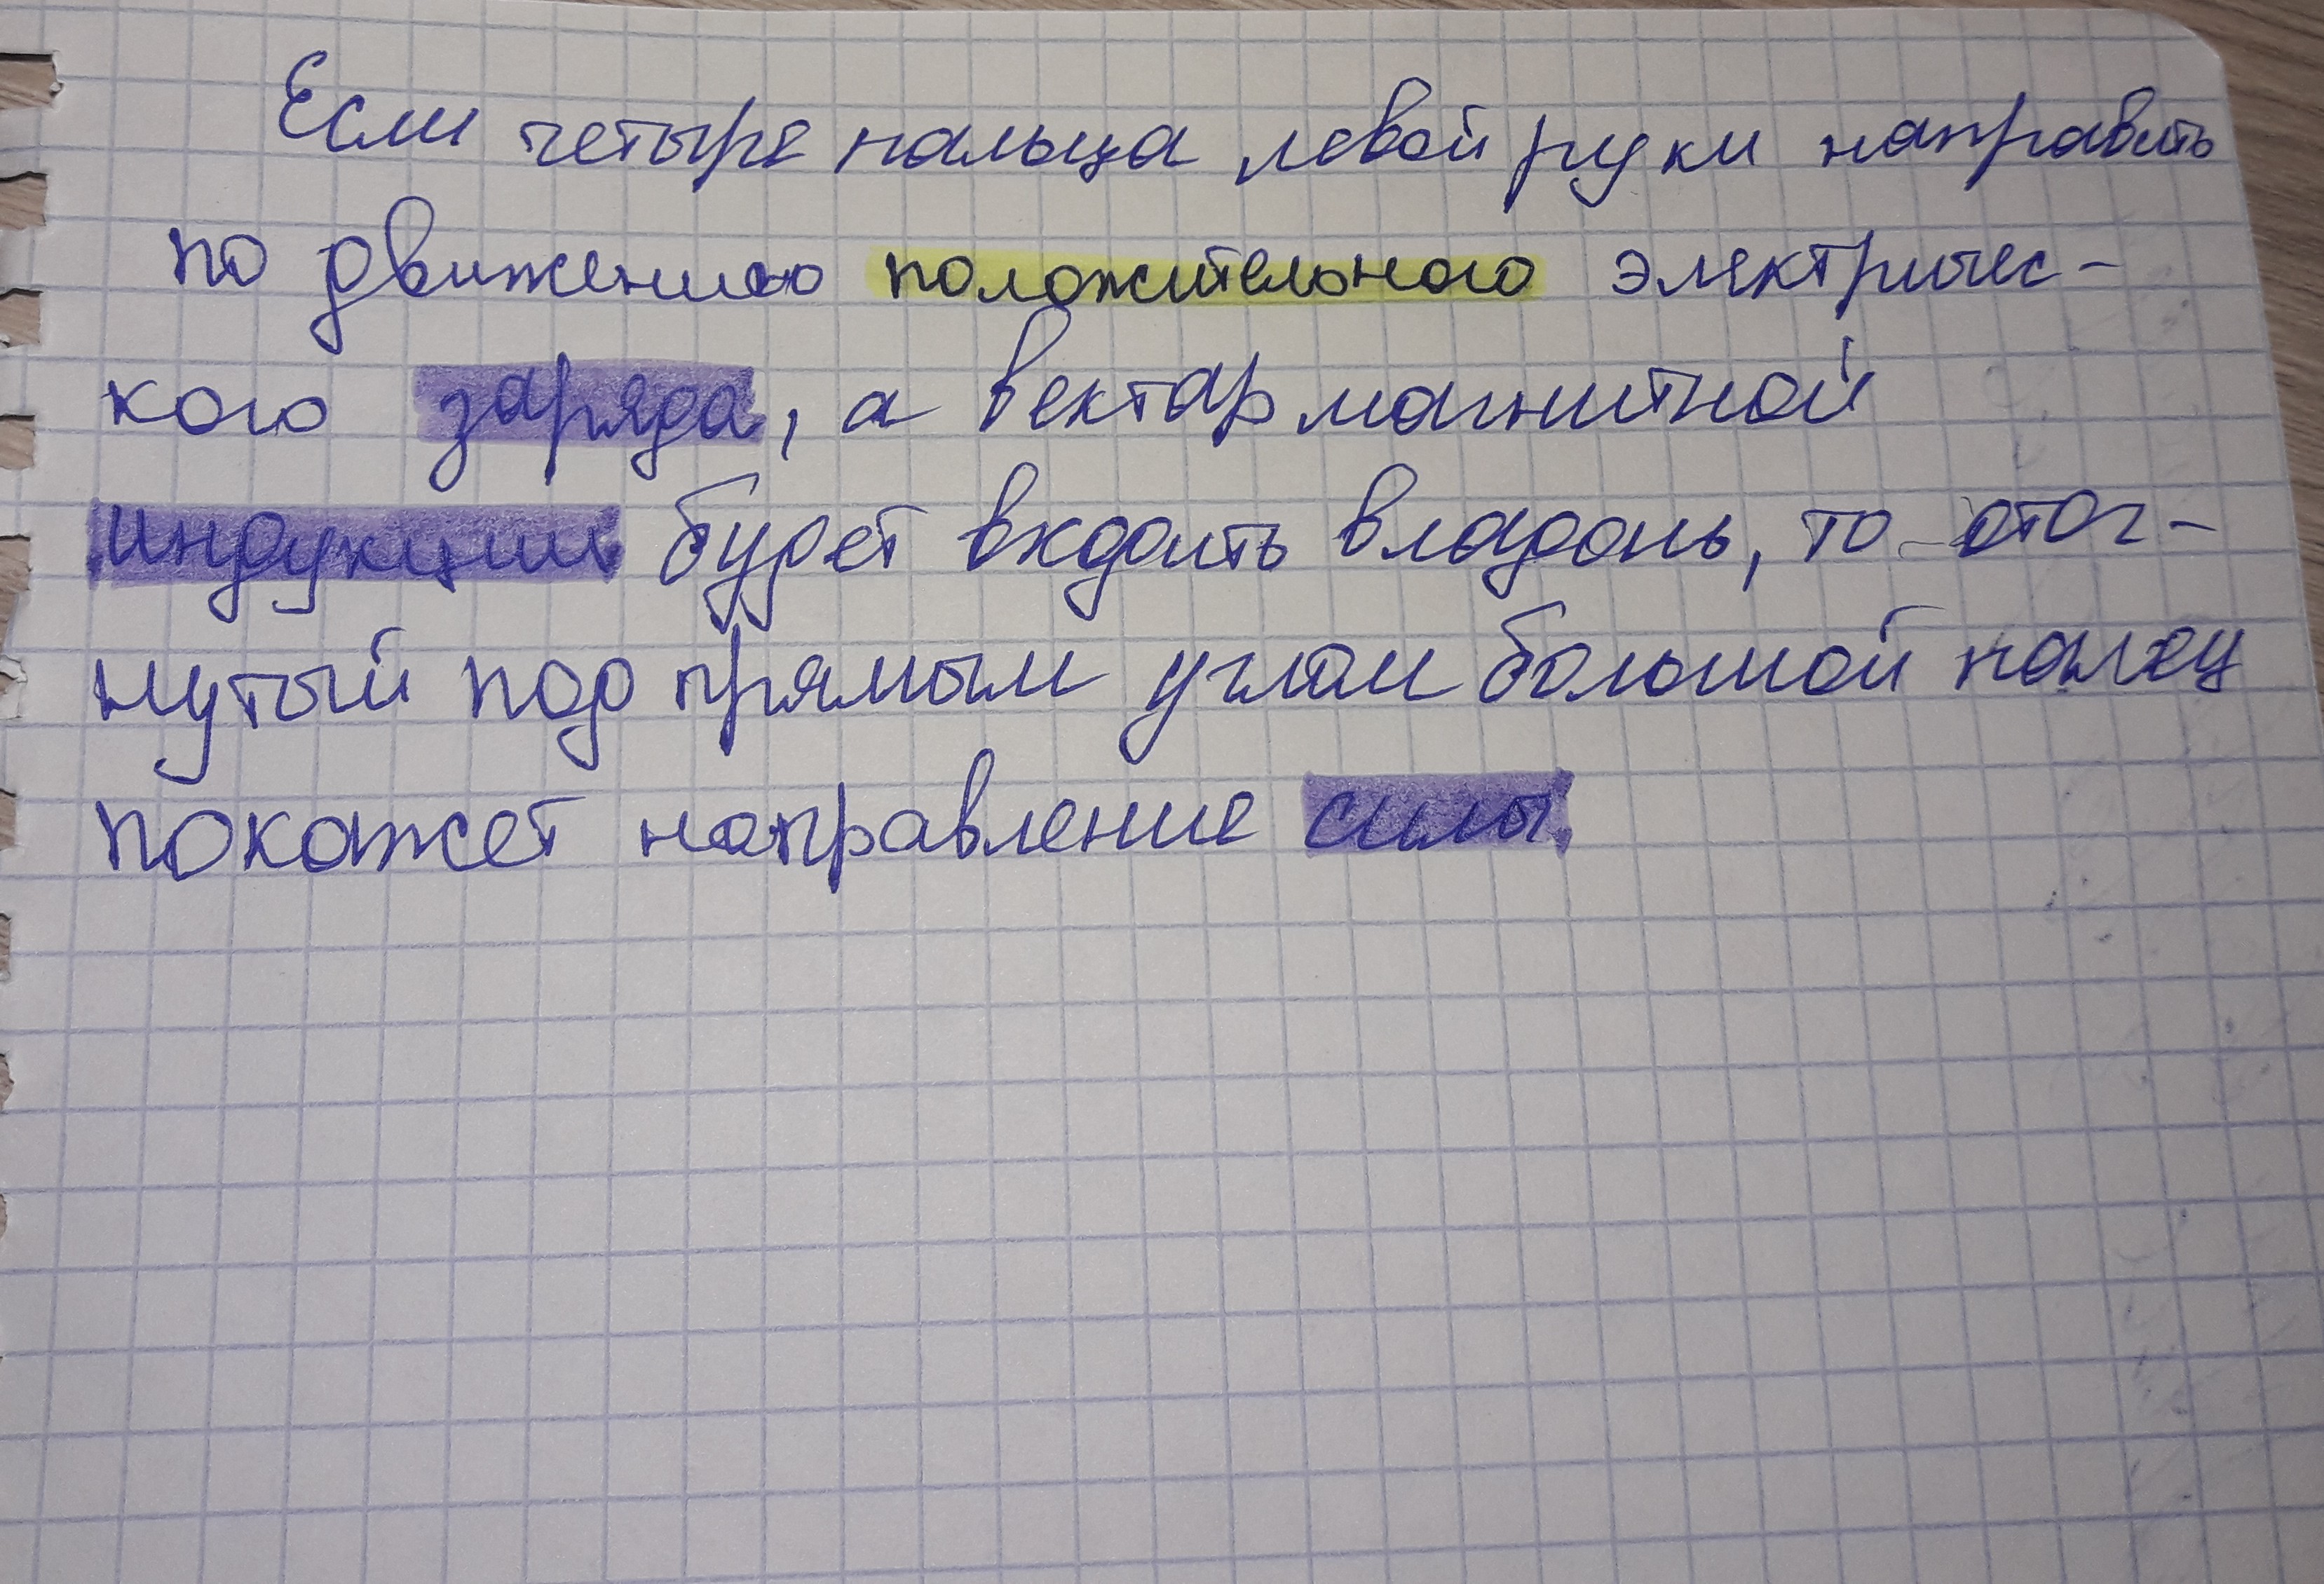 Если четыре пальца левой руки направить
по движению положительного электричес-
кого заряда, а вектар магнитной
индукции будет вхдоить владонь, то отог-
нутый под прямым углом большой палец
покажет направление силы.